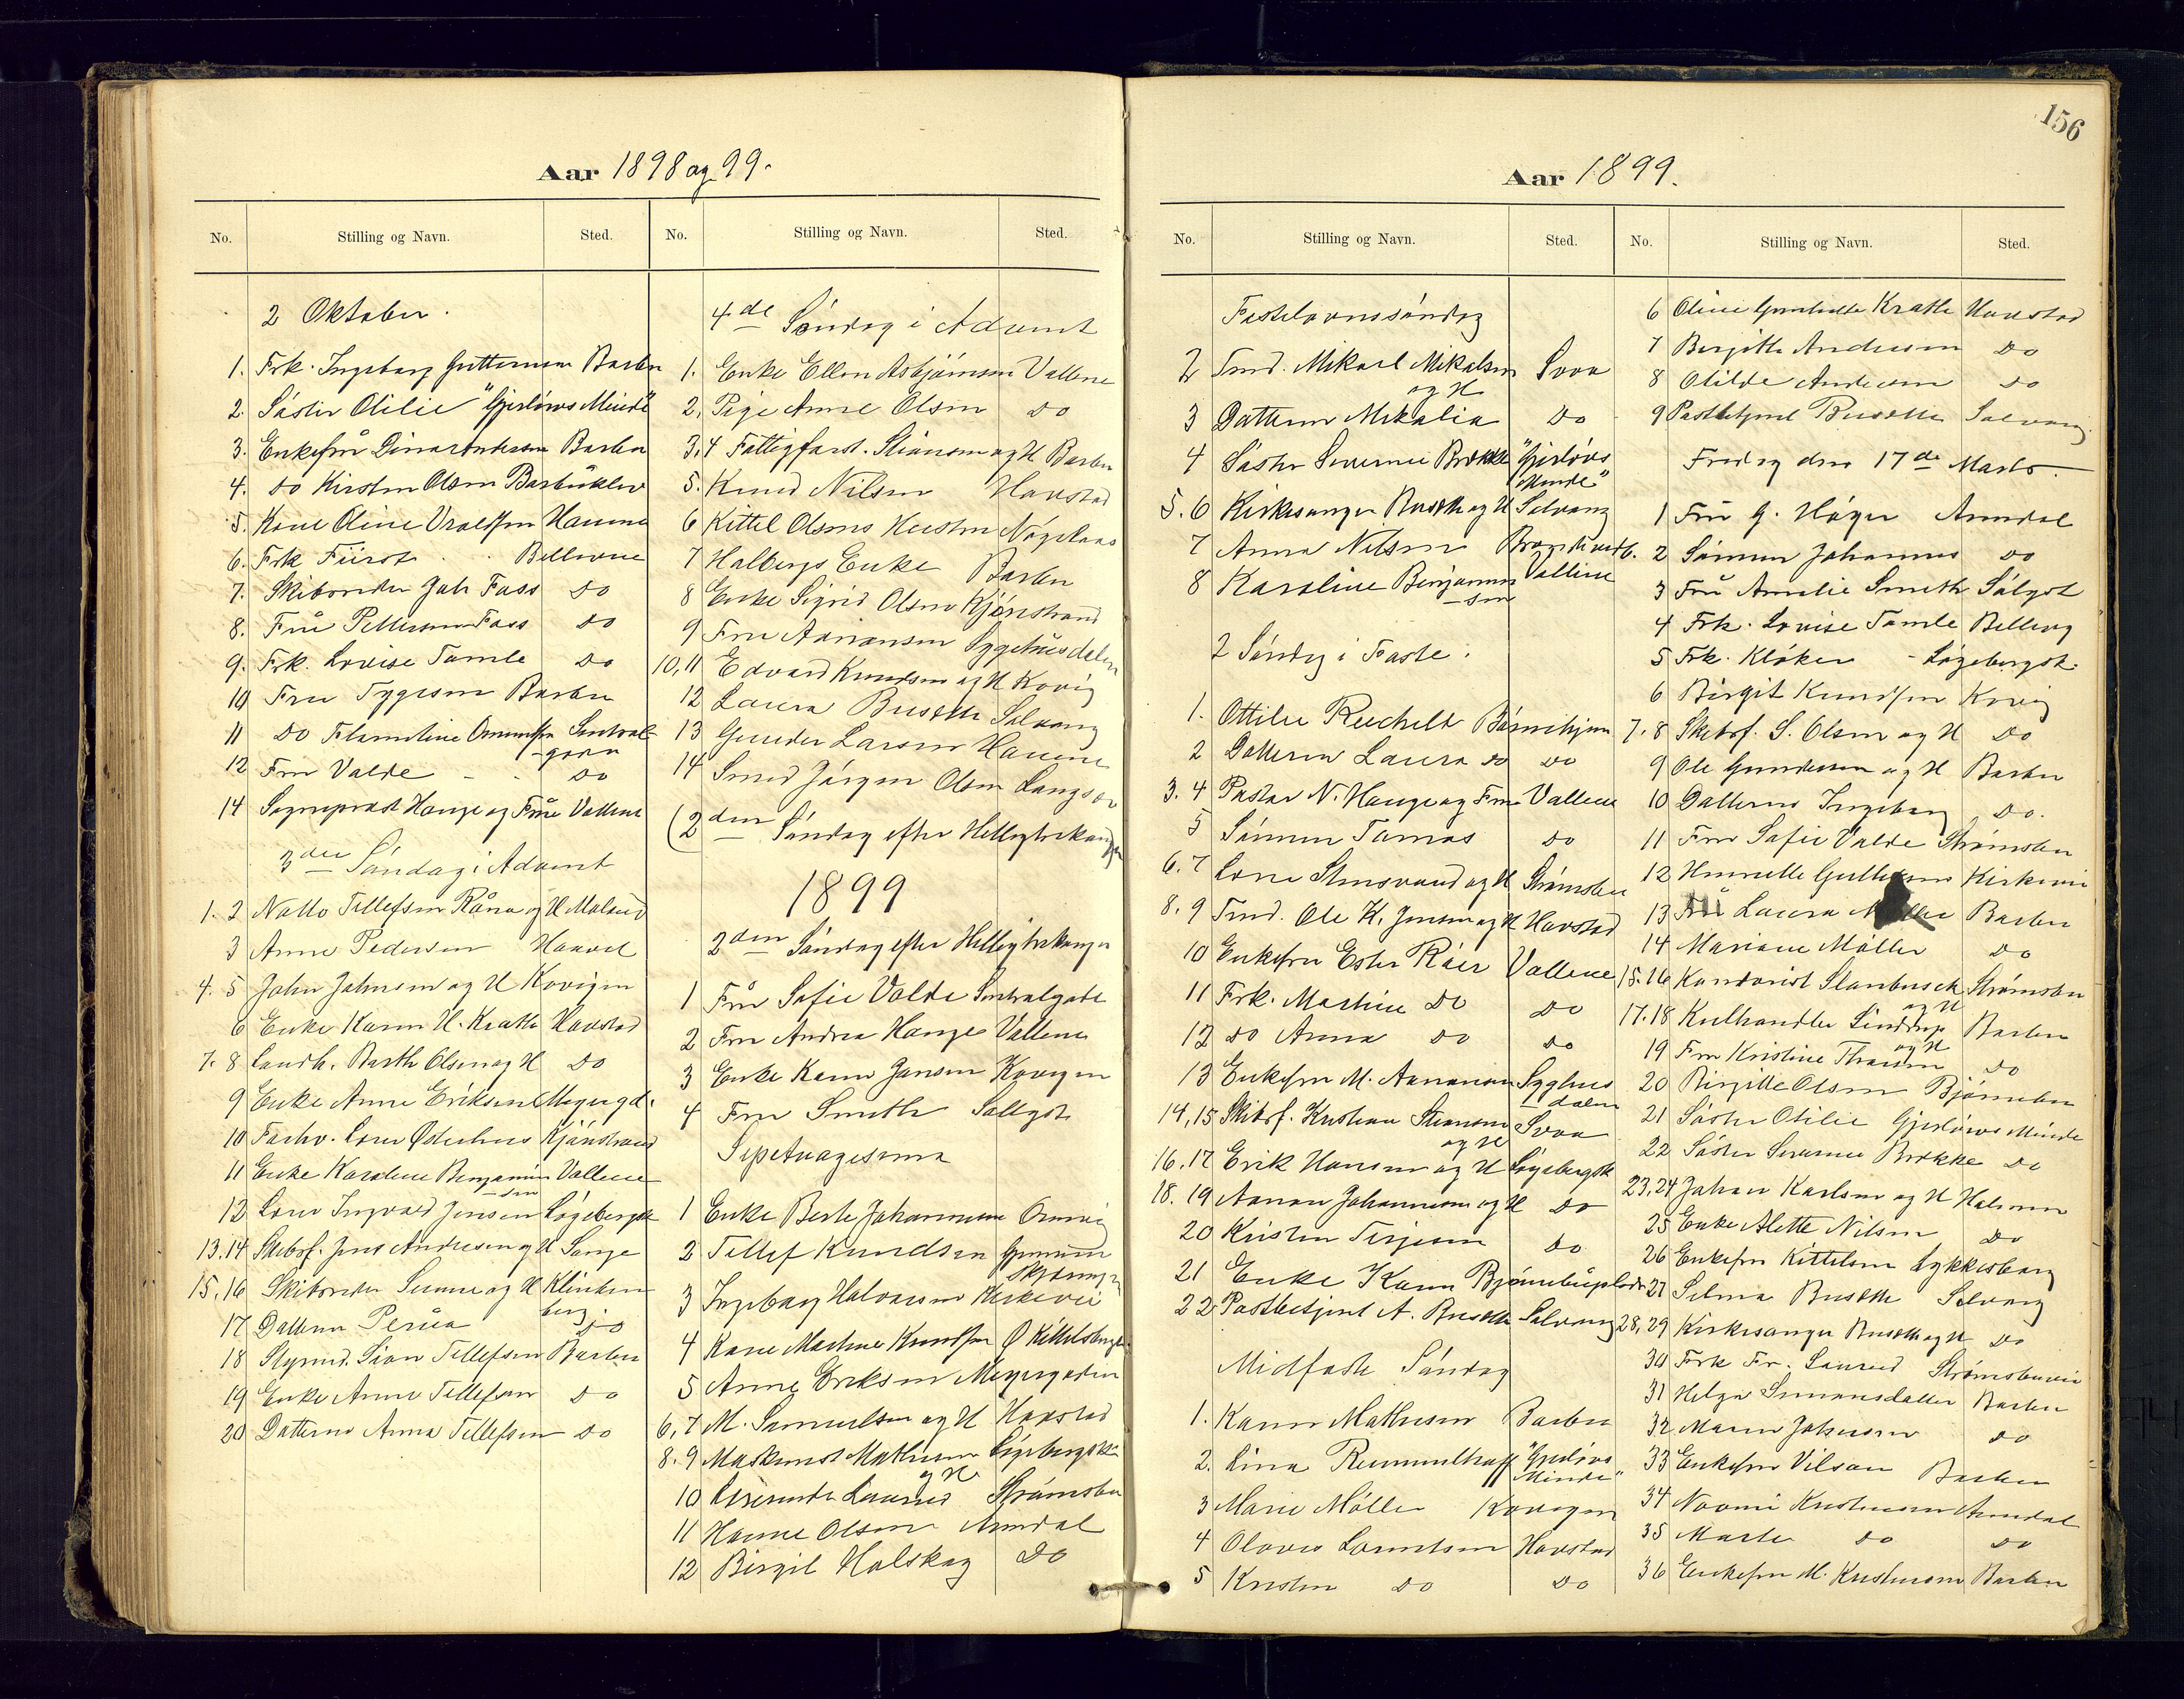 Aar 1898 og 99.
No. Stilling og Navn. Sted.
2 Oktober.
1. Frk. Ingeborg Guttormsen Barbu
2. Søster Otilie "Gjerløws Minde"
3. Enkefru Dina Andersen Barbu
4. do Kirsten Olsen Barbuklev
5. Kone Oline Hanne
6. Frk Fürst Bellevue
7. Skibsreder Joh Foss do
8. Frü Pettersen Foss do
9. Frk. Lovise Tamle do
10 Fru Tygesen Barbu
11 do Flamtine Sentral
-gaden
12 Fru Valde - - do
14 Sogneprest Hauge og Frue Vallene
3den Søndag i Advent
1. 2 Tellefsen og H
3 Anne Pedersen
4. 5 John Johnsen og H Kovigen
6 Enke Karen H. Kratte Havstad
7. 8 Landh. Barth Olsen og H do
9 Enke Anne Eriksen Meyergd.
10 Forhv. Lods Østerhus Kjønstrand
11 Enke Karoline Benjamin Vallene
-sen
12 Lods Ingvald Jensen Løgebergsk
13.14 Skibsf. Jens Andresen og H Songe
15,16 Skibsreder og H Klinken
berg.
17 Datteren do
18 Styrmd. Sion Tellefsen Barbu
19 Enke Anne Tellefsen do
20 Datteren Anna Tellefsen do
No. Stilling og Navn. Sted.
4de Søndag i Advent
1. Enke Ellen Asbjørnsen Vallene
2. Pige Anne Olsen do
3,4 Fattigforst. Stiansen og H Barbu
5. Knud Nilsen Havstad
6 Kittel Olsens Hustru
7 Halbergs Enke Barbu
8 Enke Sigrid Olsen Kjønstrand
9 Fru Aanonsen Sygehusdalen
10,11 Edvard Knudsen og H Kovig
12 Laura Busette Solvang
13 Gunder Larsen Hanne
14 Smed Jørgen Olsen Langsæ
(2den Søndag efter Helligtrekonger
1899
2den Søndag efter Helligtrekonger
1 Fru Sofie Valde Sentralgate
2 Fru Andrea Hauge Vallene
3 Enke Karen Jansen Kovigen
4 Fru Smith
Sepetuagesima
1 Enke Berte Johannesen
2 Tellef Knudsen
3 Ingeborg Halvorsen Kirkevei
4 Karen Martine Knudsen
5 Anne Eriksen Meyergaden
6,7 M. Samuelsen og H Havstad
8.9 Maskinist Mathisen Løgebergsk
og H
10 Laurud Strømsbu
11 Hanne Olsen Arendal
12 Birgit Holskog do
156
Aar 1899.
No. Stilling og Navn. Sted.
Fastelavnssøndag
2 Tmd. Mikael Mikalsen Svoa
og H
3 Datteren Mikalia do
4 Søster Severine Brekke "Gjerløws
Minde"
5.6 Kirkesanger Busette og H Solvang
7 Anna Nilsen
8 Karoline Benjamin Vallene
-sen
2 Søndag i Faste.
1. Ottilie Reichelt Børnehjem
2 Datteren Laura do do
3. 4 Pastor N. Hauge og Frue Vallene
5 Sønnen Tomas do
6. 7 Lods og H Strømsbu
8. 9 Tmd. Ole K. Jensen og H Havstad
10 Enkefru Ester Vallene
11 Frk. Martine do do
12 do Anna do do
13 Enkefru M. Aanonsen Syghus
-dalen
14,15 Skibsf. Kristian Stiansen Svoa
og H
16.17 Erik Hansen og H Løgebergsk
18. 19 Aanon Johannesen og H do
20 Kristen Terjesen do
21 Enke Karen
22 Postbetjent A. Busette Solvang
Midfaste Søndag
1. Karen Mathisen Barbu
2. Lina "Gjerløws
Minde"
3 Marie Møller Kovigen
4 Olava Lorentsen Havstad
5 Kristen do do
No. Stilling og Navn. Sted.
6 Oline Kratte Havstad
7 Bergitte Andersen do
8 Otilde Andersen do
9 Postbetjent Busette Solvang
Fredag den 17de Marts.
1 Fru G. Høyer Arendal
2 Sønnen Johannes do
3 Frü Amalie Smith
4 Frk. Lovise Tamle Bellevy
5 Frk. Kløker - Løgebergsk.
6 Birgit Knudsen Kovig
7. 8 Skibsf. S. Olsen og H do
9 Ole Gundersen og H Barbu
10 Datteren Ingeborg do.
11 Fru Sofie Valde Strømsbu
12 Kirkevei
13 Fru Laura Møller Barbu
14 Mariane Møller do
15.16 Stambusch Strømsbu
og H
17.18 Kulhandler Lindtup Barbu
og H
19 Fru Kristine do
20 Birgitte Olsen Bjørnebu
21 Søster Otilie Gjerløws Minde
22 Søster Severine Brekke do
23,24 Johan Karlsen og H
25 Enke Alette Nilsen do
26 Enkefru Kittelsen Lykkesborg
27 Selma Busette Solvang
28,29 Kirkesanger Busette og H do
30 Frk Fr. Laurud Strømsbuvei
31 Helga Simonsdatter Barbu
32 Maren Johnsen do
33 Enkefru Vilson Barbu
34 Noomi Kristensen Arendal
35 Marte do do
36 Enkefru M. Kristensen Barbu